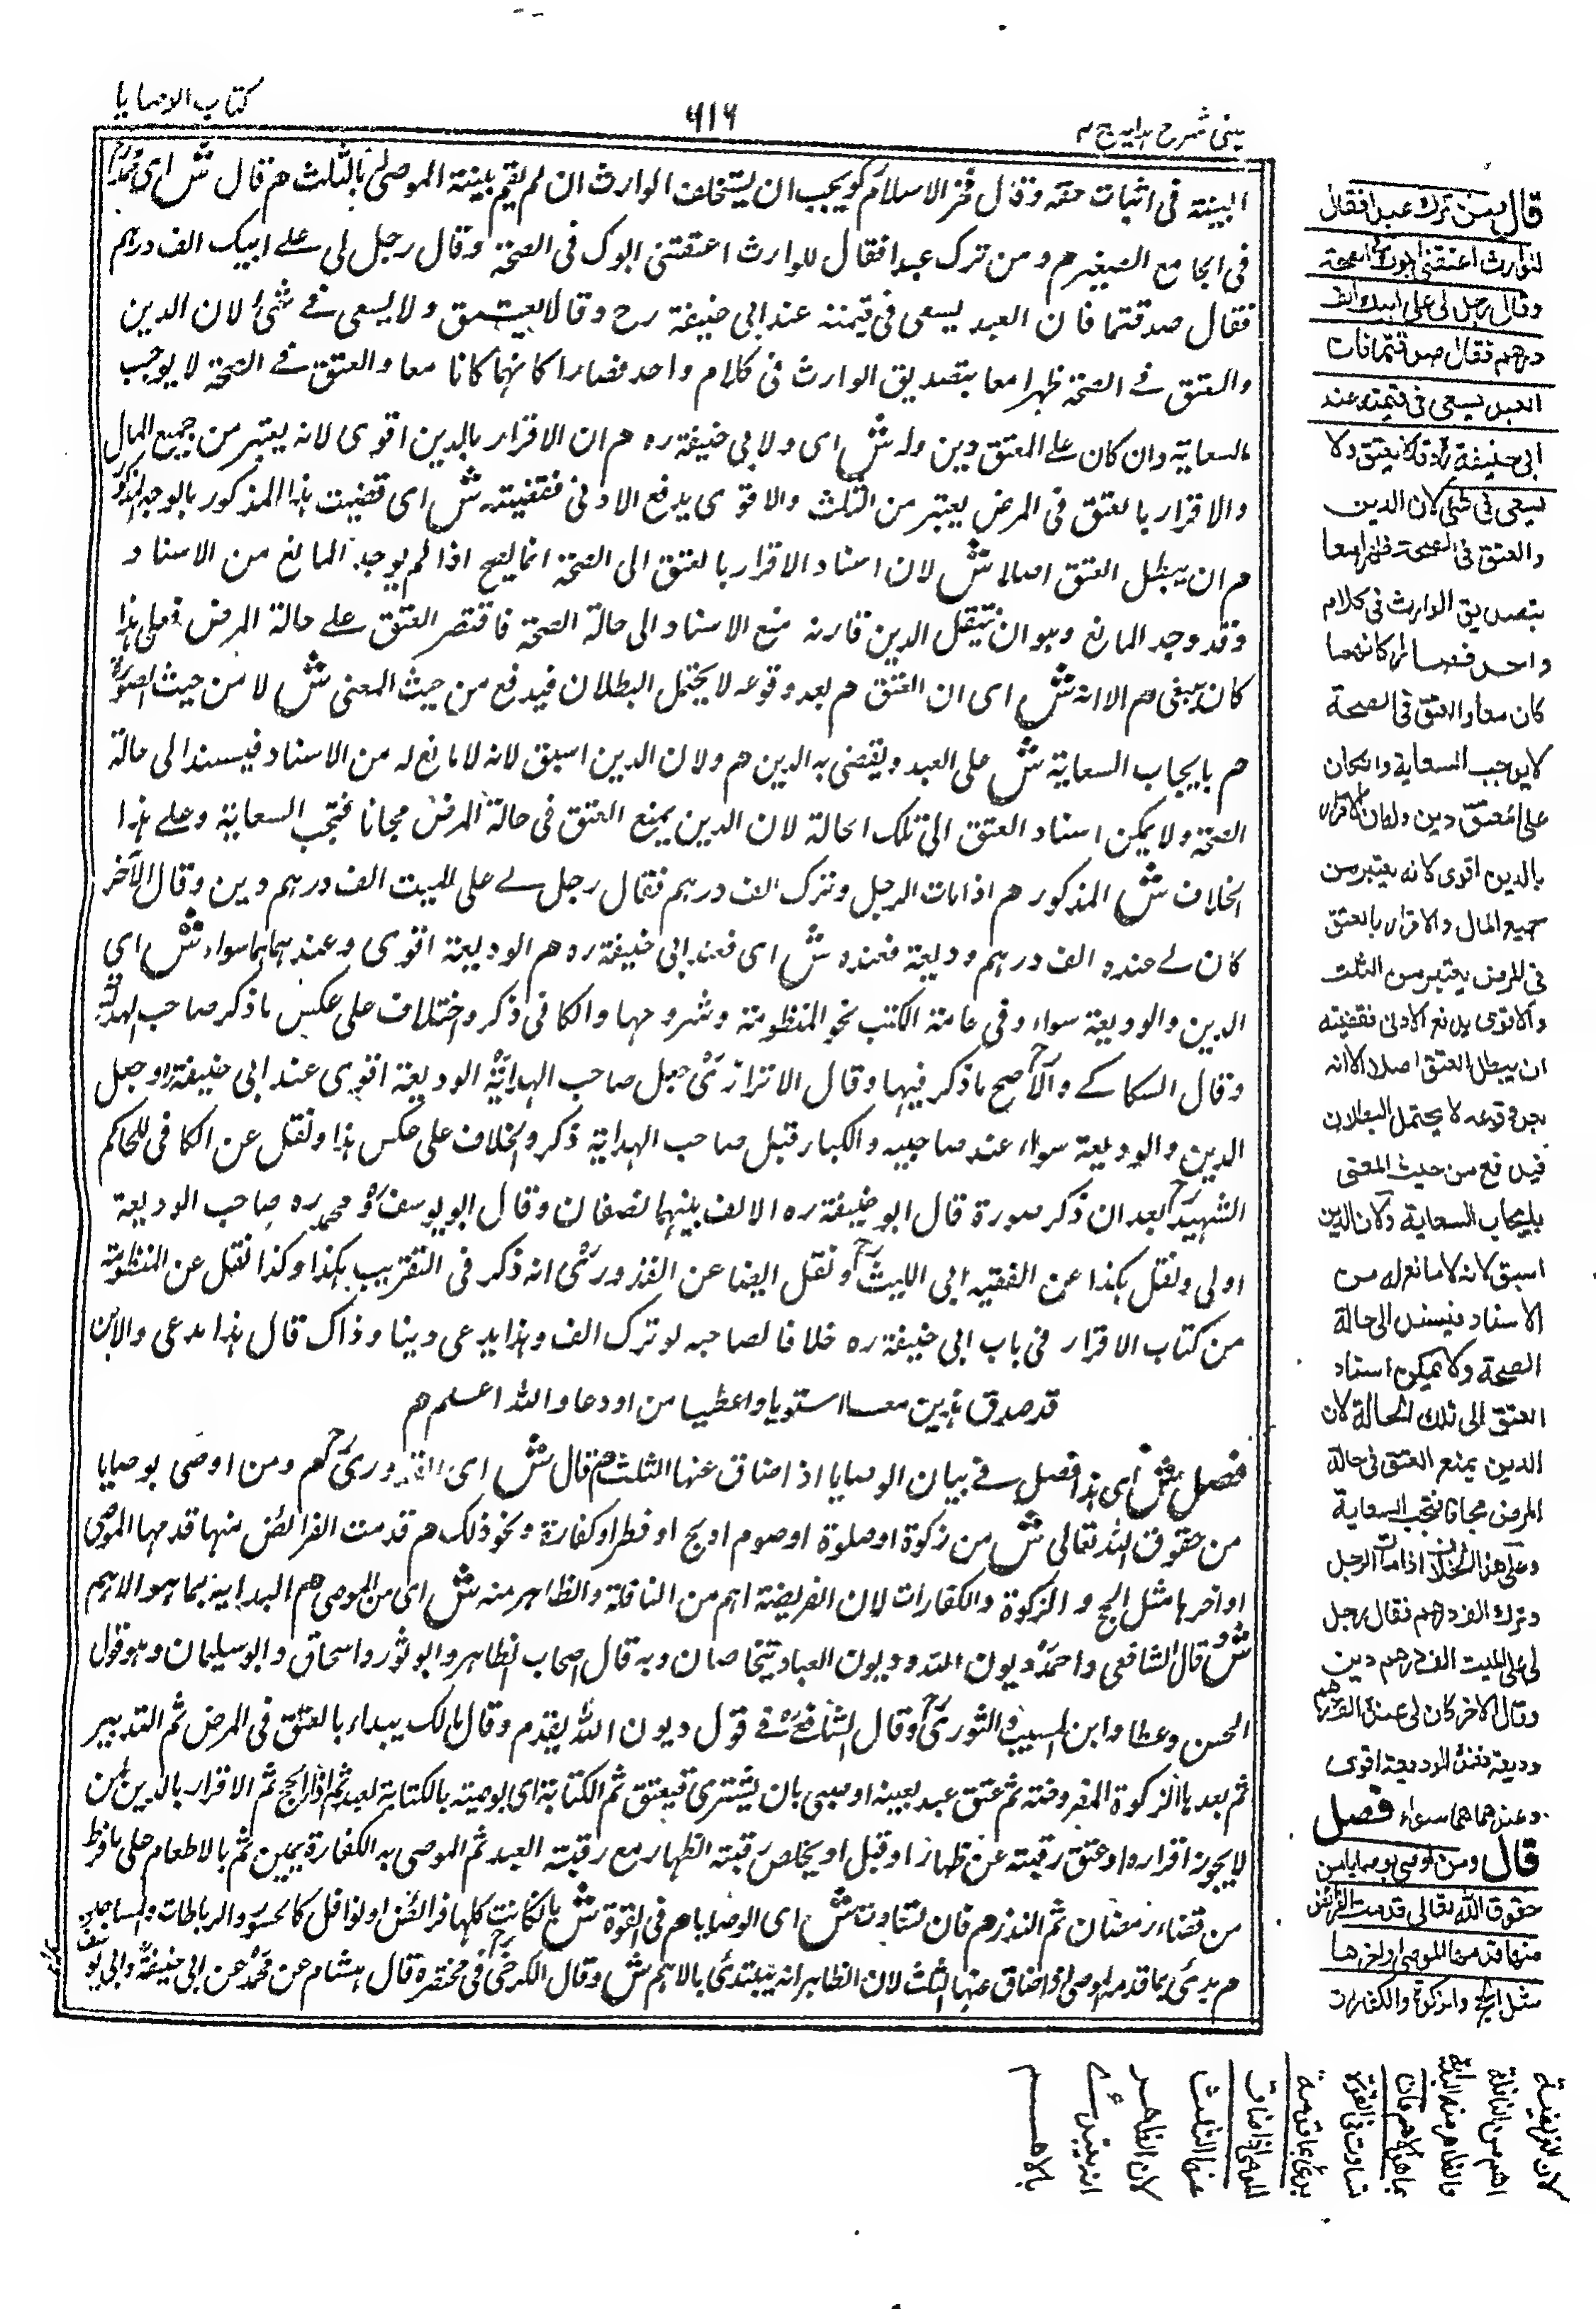 كتاب الوصايا
٦١٦
عينى شرح هدايه ج ٤
البينة فى اثبات حقه وقال فخر الاسلام كو يجب ان يستحلف الوارث ان لم يقم بينة الموصى بالثلث م قال ش اى محمد
فى الجامع الصغير م ومن ترك عبدا فقال للوارث اعتقنى ابوك فى الصحة وقال رجل لى على ابيك الف درهم
فقال صدقتما فان العبد يسعى فى قيمته عند ابى حنيفة رح وقالا يعتق ولا يسعى فى شئ لان الدين
والعتق فى الصحة ظهرا معا بتصديق الوارث فى كلام واحد فصارا كانهما كانا معا والعتق فى الصحة لا يوجب
السعاية وان كان على المعتق دين وله ش اى ولابى حنيفة ره م ان الاقرار بالدين اقوى لانه يعتبر من جميع المال
والاقرار بالعتق فى المرض يعتبر من الثلث والاقوى يدفع الادنى فقضيته ش اى قضيت هذا المذكور بالوجه المذكور
م ان يبطل العتق اصلا ش لان اسناد الاقرار بالعتق الى الصحة انما يصح اذا لم يوجد المانع من الاسناد
وقد وجد المانع وهو ان تنقل الدين قارنه منع الاسناد الى حالة الصحة فاقتصر العتق على حالة المرض فعلى هذا
كان ينبغى م الا انه ش اى ان العتق م بعد وقوعه لا يحتمل البطلان فيدفع من حيث المعنى ش لا من حيث الصورة
م بايجاب السعاية ش على العبد ويقضى به الدين م ولان الدين اسبق لانه لا مانع له من الاسناد فيسند الى حالة
الصحة ولا يمكن اسناد العتق الى تلك الحالة لان الدين يمنع العتق فى حالة المرض مجانا فتجب السعاية وعلى هذا
الخلاف ش المذكور م اذا مات الرجل وترك الف درهم فقال رجل لى على الميت الف درهم دين وقال الآخر
كان لى عنده الف درهم وديعة فعنده ش اى فعند ابى حنيفة ره م الوديعة اقوى وعندهما هما سواء ش اى
الدين والوديعة سواء وفى عامة الكتب نحو المنظومة وشروحها والكافى ذكروا ختلاف على عكس ما ذكر صاحب الهداية
وقال السكاكى والاصح ما ذكر فيها وقال الاترازى جعل صاحب الهداية الوديعة اقوى عند ابى حنيفة ره وجعل
الدين والوديعة سواء عند صاحبيه والكبار قبل صاحب الهداية ذكروا الخلاف على عكس هذا ونقل عن الكافى للحاكم
الشهيد بعد ان ذكر صورة قال ابو حنيفة ره الالف بينهما نصفان وقال ابو يوسف و محمد ره صاحب الوديعة
اولى ونقل هكذا عن الفقيه ابى الليث ونقل ايضا عن القدورى انه ذكر فى التقريب هكذا وكذا نقل عن المنظومة
من كتاب الاقرار فى باب ابى حنيفة ره خلافا لصاحبه لو ترك الف وهذا يدعى دينا وذاك قال هذا مدعى والابن
قد صدق هذين معا استويا واعطيا من اودعا والله اعلم م
فصل ش اى هذا فصل فى بيان الوصايا اذا ضاق عنها الثلث م قال ش اى القدورى م ومن اوصى بوصايا
من حقوق الله تعالى ش من زكوة او صلوة او صوم او حج او فطر او كفارة ونحو ذلك م قدمت الفرائض منها قدمها الموصى
او اخرها مثل الحج و الزكوة والكفارات لان الفريضة اهم من النافلة والظاهر منه ش اى من الموصى م البداية بما هو الاهم
ش وقال الشافعى واحمد ديون الله وديون العباد يتخاصان وبه قال اصحاب الظاهر وابو ثور واسحاق وابو سليمان وهو قول
الحسن وعطاء وابن المسيب والثورى وقال الشافعى فى قول ديون الله يقدم وقال مالك يبداء بالعتق فى المرض ثم التدبير
ثم بعد ها الزكوة المفروضة ثم عتق عبد بعينه اوصى بان يشترى فيعتق ثم الكتابة اى بوصيته بالكتابة لعبد ثم الحج ثم الاقرار بالدين لمن
لا يجوز اقراره او عتق رقبة عن ظهار او قتل او يخلص رقبة الظهار مع رقبة العبد ثم الموصى به الكفارة يمين ثم بالاطعام على ما فرط
من قضاء رمضان ثم النذر م فان تساوت ش اى الوصايا م فى القوة ش بان كانت كلها فرائض او نوافل كالجسور والرباطات والمساجد
م بدئ بما قدمه الموصى اذا ضاق عنها الثلث لان الظاهر انه يبتدئ بالاهم ش وقال الكرخى فى مختصره قال هشام عن محمد عن ابى حنيفة وابى يوسف
قال ومن ترك عبدا فقال
للوارث اعتقنى ابوك فى الصحة
وقال رجل لى على ابيك الف
درهم فقال صدقتما فان
العبد يسعى فى قيمته عند
ابى حنيفة رح وقالا يعتق ولا
يسعى فى شئ لان الدين
والعتق فى الصحة ظهرا معا
بتصديق الوارث فى كلام
واحد فصارا كانهما
كانا معا والعتق فى الصحة
لا يوجب السعاية وان كان
على المعتق دين وله ان الاقرار
بالدين اقوى لانه يعتبر من
جميع المال والاقرار بالعتق
فى المرض يعتبر من الثلث
والاقوى يدفع الادنى فقضيته
ان يبطل العتق اصلا الا انه
بعد وقوعه لا يحتمل البطلان
فيدفع من حيث المعنى
بايجاب السعاية ولان الدين
اسبق لانه لا مانع له من
الاسناد فيستند الى حالة
الصحة ولا يمكن اسناد
العتق الى تلك الحالة لان
الدين يمنع العتق فى حالة
المرض مجانا فتجب السعاية
وعلى هذا الخلاف اذا مات الرجل
وترك الف درهم فقال رجل
لى على الميت الف درهم دين
وقال الاخر كان لى عنده الف درهم
وديعة فعنده الوديعة اقوى
وعندهما هما سواء فصل
قال ومن اوصى بوصايا من
حقوق الله تعالى قدمت الفرائض
منها قدمها الموصى او اخرها
مثل الحج والزكوة والكفارات
لان الفريضة
اهم من النافلة
والظاهر منه البداية
بما هو الاهم فان
تساوت فى القوة
بدئ بما قدمه
الموصى اذا ضاق
عنها الثلث
لان الظاهر
انه يبتدئ
بالاهم